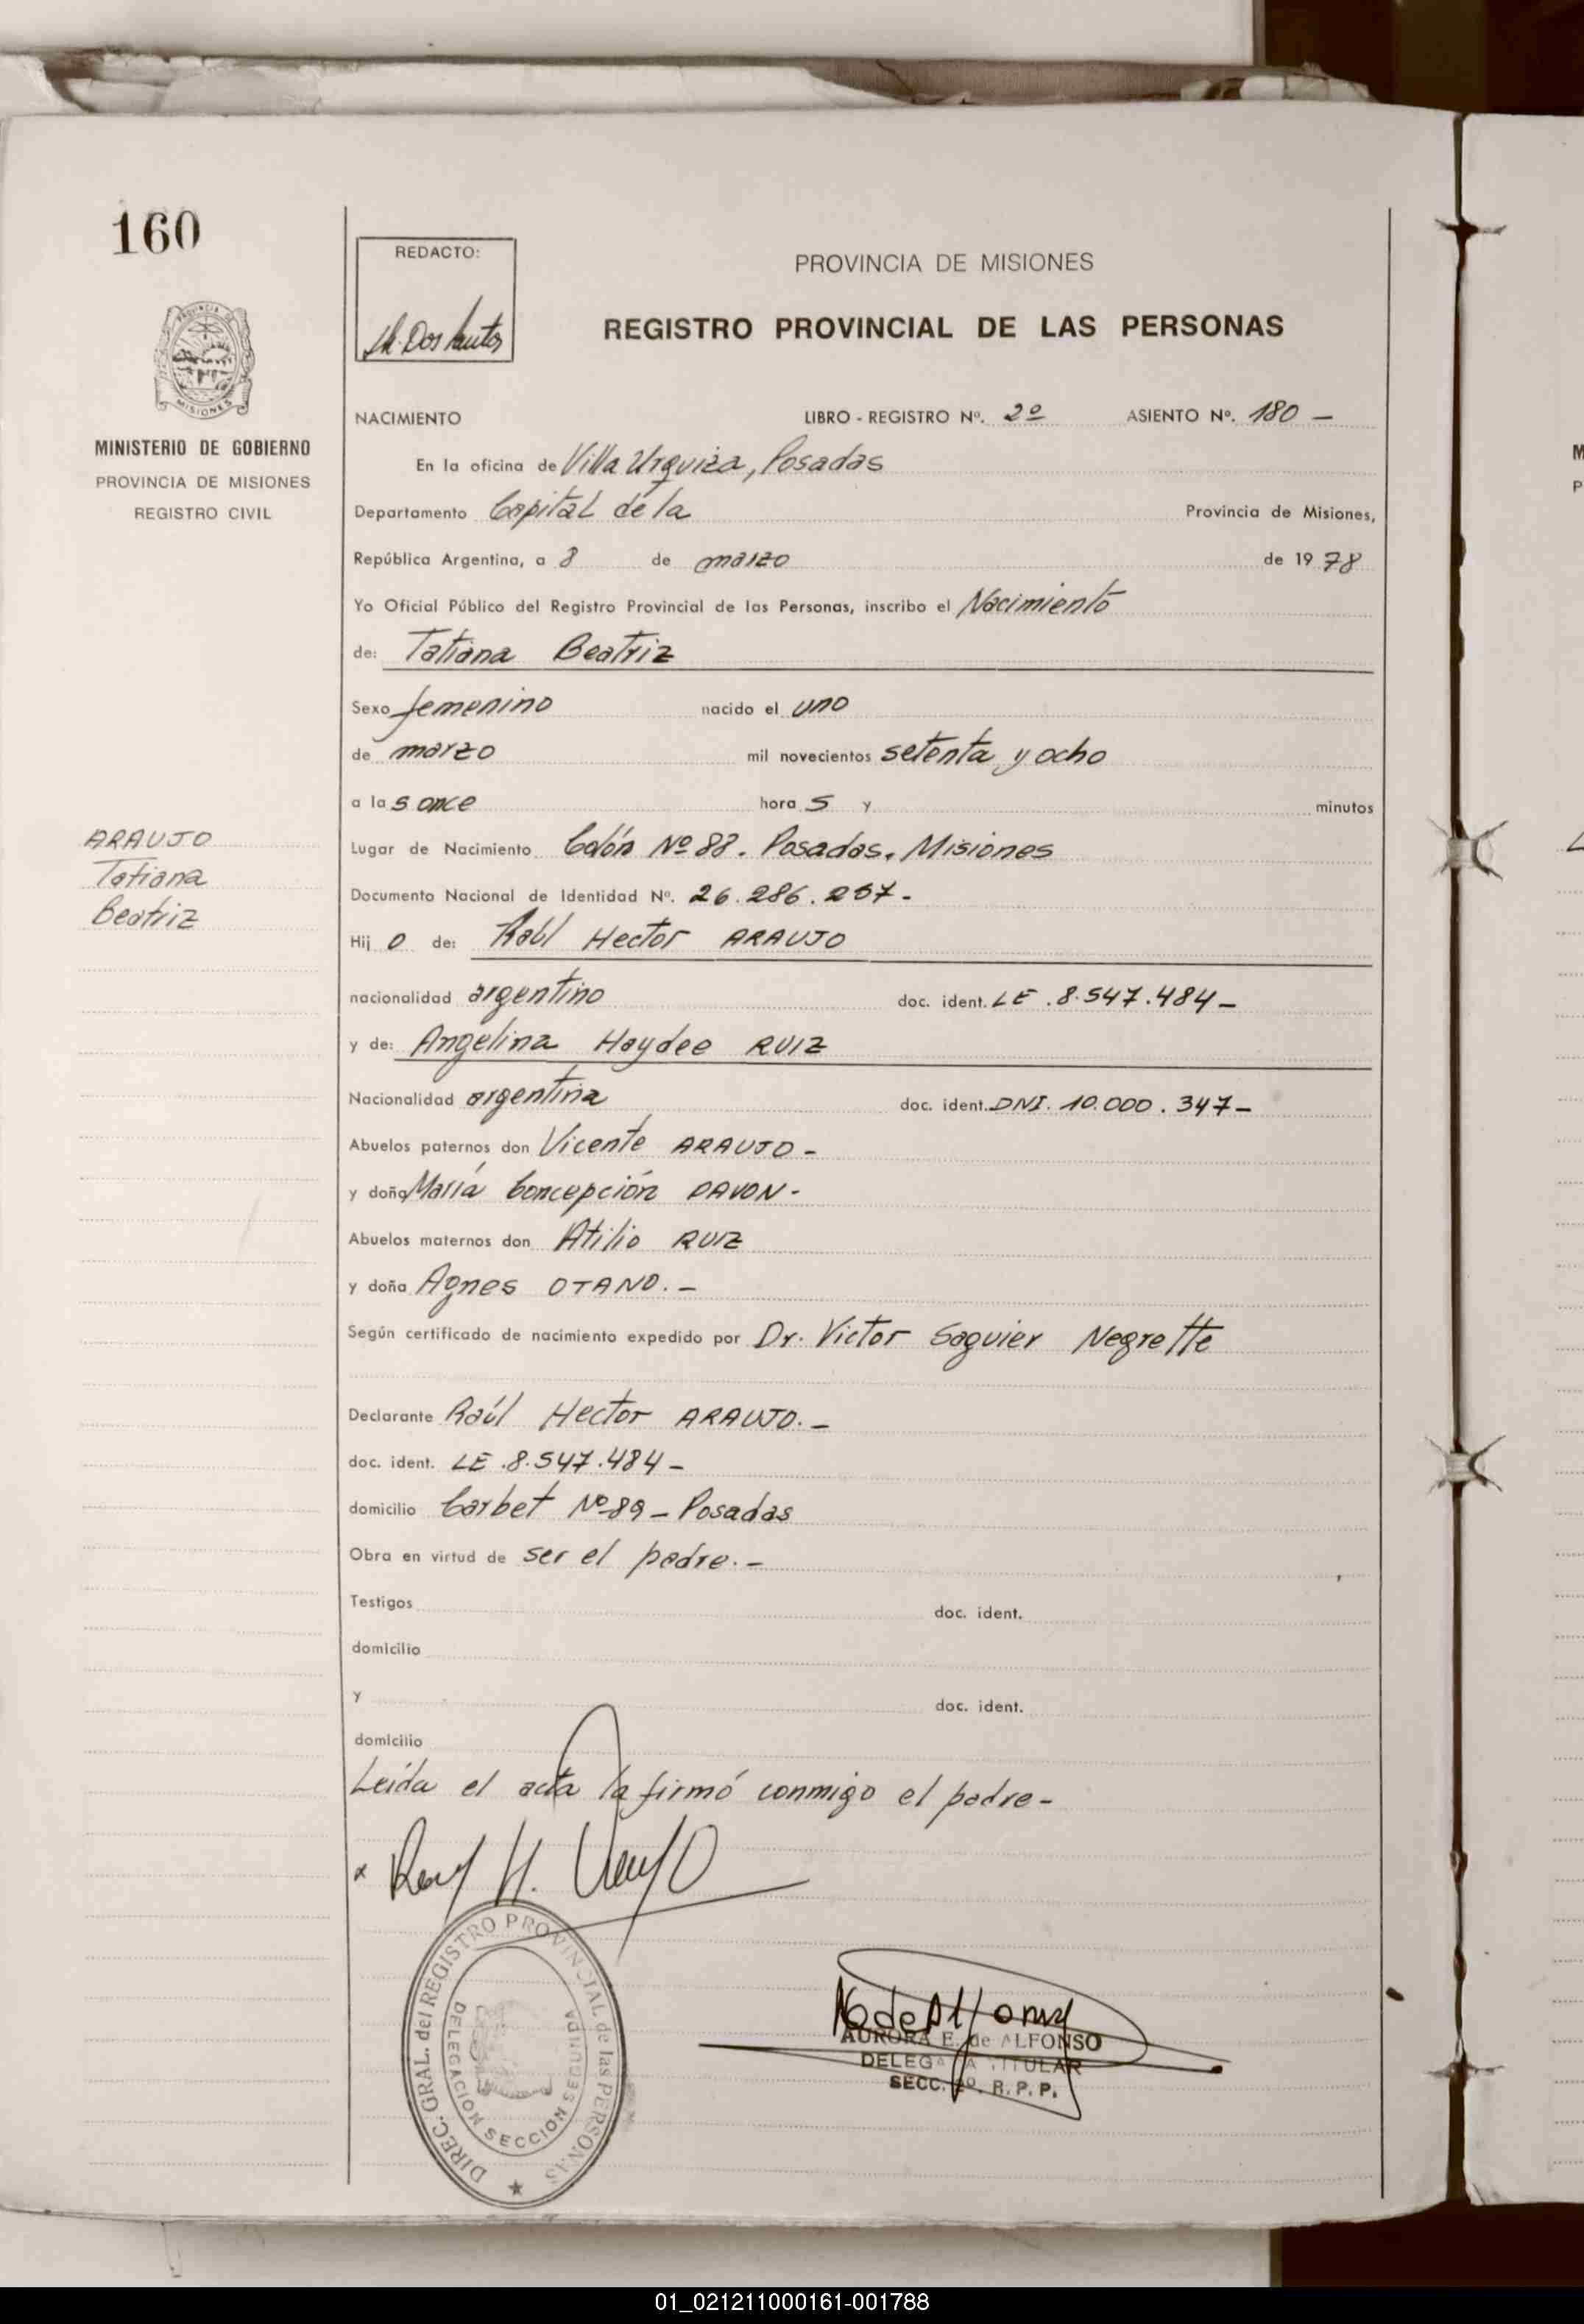 160
REDACTO:
PROVINCIA DE MISIONES
REGISTRO PROVINCIAL DE LAS PERSONAS
PROVINCIA DE
MISIONES
MINISTERIO DE GOBIERNO
PROVINCIA DE MISIONES
REGISTRO CIVIL
NACIMIENTO LIBRO - REGISTRO Nº. 2º ASIENTO Nº. 180 -
En la oficina de Villa Urquiza, Posadas
Departamento Capital de la Provincia de Misiones,
República Argentina, a 8 de marzo de 1978
Yo Oficial Público del Registro Provincial de las Personas, inscribo el Nacimiento
de: Tatiana Beatriz
Sexo femenino nacido el uno
de marzo mil novecientos setenta y ocho
a las once horas y minutos
ARAUJO
Tatiana
Beatriz
Lugar de Nacimiento Colón Nº 88. Posadas. Misiones
Documento Nacional de Identidad Nº. 26.286.267-
Hijo de: Raúl Hector ARAUJO
nacionalidad argentino doc. ident. LE .8.547.484-
y de: Angelina Haydee RUIZ
Nacionalidad argentina doc. ident. DNI. 10.000.347-
Abuelos paternos don Vicente ARAUJO-
y doña María Concepción PAVON-
Abuelos maternos don Atilio RUIZ
y doña Agnes OTANO.-
Según certificado de nacimiento expedido por Dr. Victor Saguier Negrette
Declarante Raúl Hector ARAUJO.-
doc. ident. LE .8.547.484-
domicilio Corbet Nº 89 - Posadas
Obra en virtud de ser el padre.-
Testigos doc. ident.
domicilio
y doc. ident.
domicilio
Leída el acta la firmó conmigo el padre-
DIREC. GRAL. del REGISTRO PROVINCIAL de las PERSONAS
DELEGACION SECCION SEGUNDA
AURORA E. de ALFONSO
DELEGADA TITULAR
SECC. 2º. R. P. P.
01_021211000161-001788